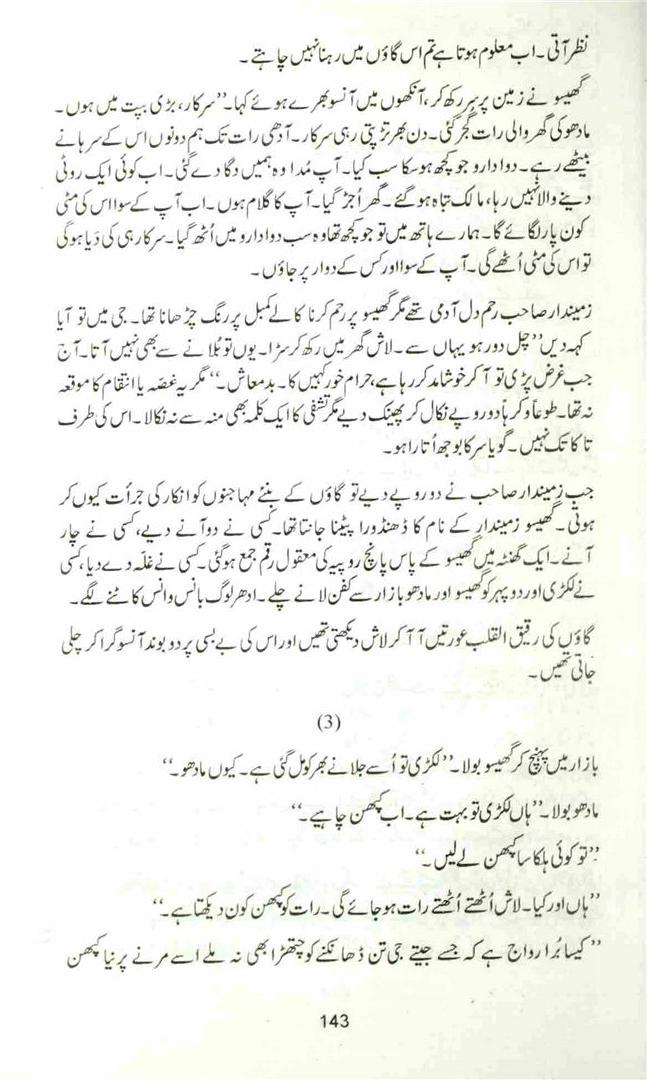 نظر آتی۔ اب معلوم ہوتا ہے تم اس گاؤں میں رہنا نہیں چاہتے۔
گھیسو نے زمین پر سر رکھ کر، آنکھوں میں آنسو بھرے ہوئے کہا۔ ”سرکار، بڑی بپت میں ہوں۔
مادھو کی گھر والی رات گجر گئی۔ دن بھر تڑپتی رہی سرکار۔ آدھی رات تک ہم دونوں اس کے سرہانے
بیٹھے رہے۔ دوا دارو جو کچھ ہو سکا سب کیا۔ آپ مُدا وہ ہمیں دگا دے گئی۔ اب کوئی ایک روٹی
دینے والا نہیں رہا، مالک تباہ ہو گئے۔ گھر اُجڑ گیا۔ آپ کا گلام ہوں۔ اب آپ کے سوا اس کی مٹی
کون پار لگائے گا۔ ہمارے ہاتھ میں تو جو کچھ تھا وہ سب دوا دارو میں اُٹھ گیا۔ سرکار ہی کی دَیا ہو گی
تو اس کی مٹی اُٹھے گی۔ آپ کے سوا اور کس کے دوار پر جاؤں۔
زمیندار صاحب رحم دل آدمی تھے مگر گھیسو پر رحم کرنا کالے کمبل پر رنگ چڑھانا تھا۔ جی میں تو آیا
کہہ دیں ”چل دور ہو یہاں سے۔ لاش گھر میں رکھ کر سڑا۔ یوں تو بُلانے سے بھی نہیں آتا۔ آج
جب غرض پڑی تو آ کر خوشامد کر رہا ہے، حرام خور کہیں کا۔ بدمعاش۔“ مگر یہ غصّہ یا انتقام کا موقعہ
نہ تھا۔ طوعاً و کرہاً دو روپے نکال کر پھینک دیے مگر تشفی کا ایک کلمہ بھی منہ سے نہ نکالا۔ اس کی طرف
تا کا تک نہیں۔ گویا سر کا بوجھ اُتارا ہو۔
جب زمیندار صاحب نے دو روپے دیے تو گاؤں کے بنئے مہاجنوں کو انکار کی جرأت کیوں کر
ہوتی۔ گھیسو زمیندار کے نام کا ڈھنڈورا پیٹنا جانتا تھا۔ کسی نے دو آنے دیے، کسی نے چار
آنے۔ ایک گھنٹہ میں گھیسو کے پاس پانچ روپیہ کی معقول رقم جمع ہو گئی۔ کسی نے غلّہ دے دیا، کسی
نے لکڑی اور دوپہر کو گھیسو اور مادھو بازار سے کفن لانے چلے۔ ادھر لوگ بانس وانس کاٹنے لگے۔
گاؤں کی رقیق القلب عورتیں آ آ کر لاش دیکھتی تھیں اور اس کی بے بسی پر دو بوند آنسو گرا کر چلی
جاتی تھیں۔
(3)
بازار میں پہنچ کر گھیسو بولا۔ ”لکڑی تو اُسے جلانے بھر کو مل گئی ہے۔ کیوں مادھو۔“
مادھو بولا۔ ”ہاں لکڑی تو بہت ہے۔ اب کپھن چاہیے۔“
”تو کوئی ہلکا سا کپھن لے لیں۔“
”ہاں اور کیا۔ لاش اُٹھتے اُٹھتے رات ہو جائے گی۔ رات کو کپھن کون دیکھتا ہے۔“
”کیسا بُرا رواج ہے کہ جسے جیتے جی تن ڈھانکنے کو چتھڑا بھی نہ ملے اسے مرنے پر نیا کپھن
143